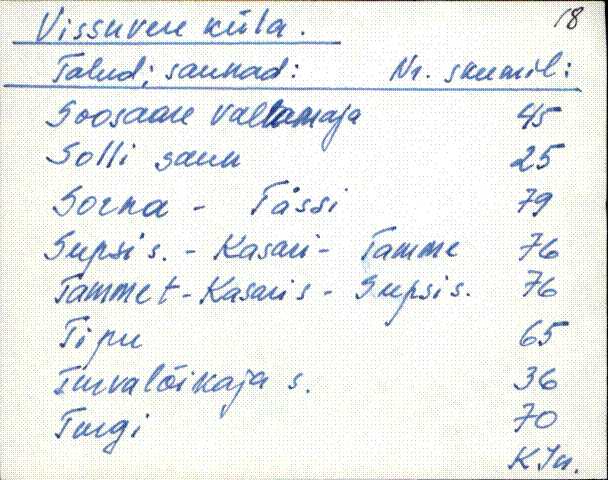 18
Vissuvere küla.
Talud; saunad: Nr. skeemil:
Soosaare vallamaja 45
Solli saun 25
Sorna - Tässi 79
Supsi s. - Kasari - Tamme 76
Tammet - Kasari s - Supsi s. 76
Tipu 65
Turvalõikaja s. 36
Turgi 70